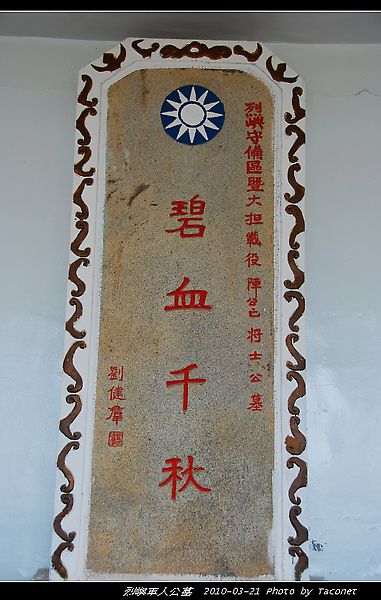 烈嶼守備區暨大担戰役陣亡将士公墓
碧血千秋
劉健羣
烈嶼軍人公墓 2010-03-21 Photo by Taconet